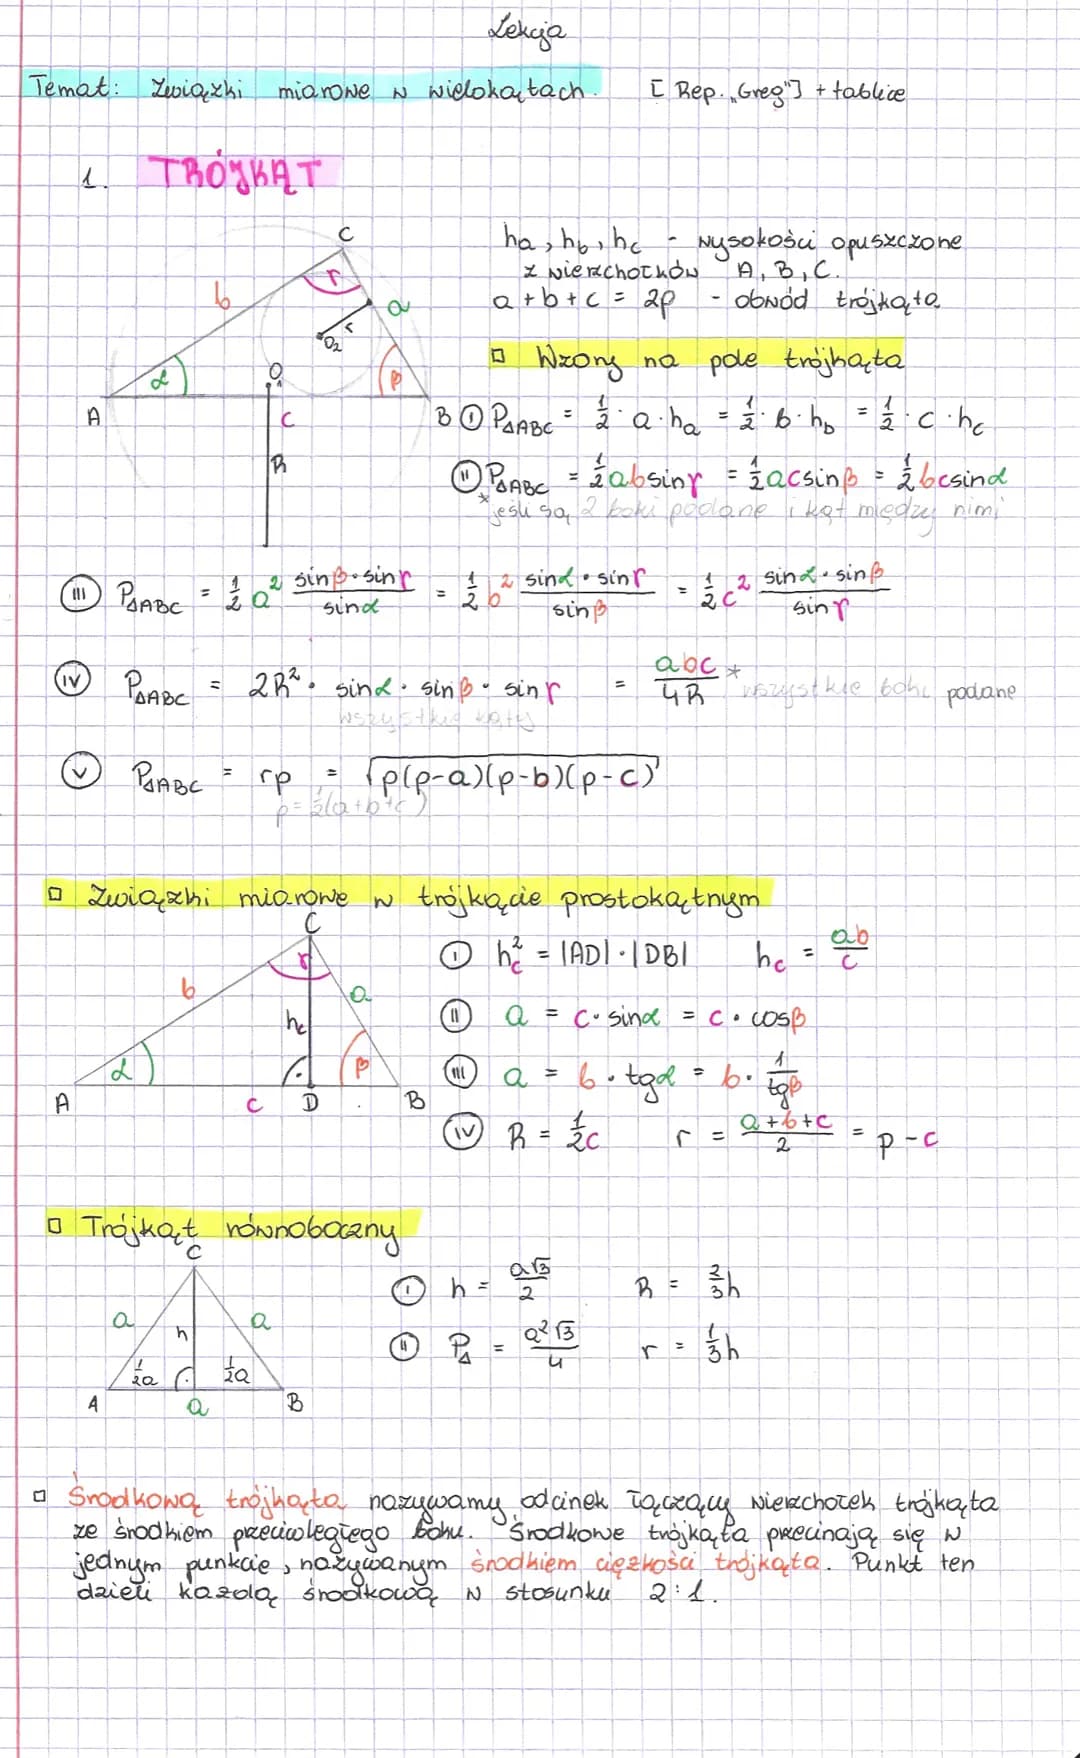 Lekcja
Temat: Związki miarowe w wielokątach. [Rep. „Greg"] + tablice
1. TRÓJKĄT
C
b
γ
a
r
O₂
α
O₁
β
A
c
B
R
hₐ, h_b, h_c - wysokości opuszczone
z wierzchołków A, B, C.
a + b + c = 2p - obwód trójkąta
□ Wzory na pole trójkąta
Ⓘ P△ABC = 1/2 · a · hₐ = 1/2 · b · h_b = 1/2 · c · h_c
Ⓘ︎Ⓘ P△ABC = 1/2 ab sinγ = 1/2 ac sinβ = 1/2 bc sinα
* jeśli są 2 boki podane i kąt między nimi
(III) P△ABC = 1/2 a² (sinβ · sinγ)/sinα = 1/2 b² (sinα · sinγ)/sinβ = 1/2 c² (sinα · sinβ)/sinγ
(IV) P△ABC = 2R² · sinα · sinβ · sinγ = abc/4R * wszystkie boki podane
wszystkie kąty
(V) P△ABC = rp = √(p(p-a)(p-b)(p-c))
p = 1/2(a+b+c)
□ Związki miarowe w trójkącie prostokątnym
C
γ
b
a
h_c
α
β
A
c
D
B
(I) h_c² = |AD| · |DB| h_c = ab/c
(II) a = c · sinα = c · cosβ
(III) a = b · tgα = b · 1/tgβ
(IV) R = 1/2 c r = (a+b+c)/2 = p - c
□ Trójkąt równoboczny
C
a
h
a
1/2a
1/2a
A
a
B
(I) h = a√3/2 R = 2/3 h
(II) P△ = a²√3/4 r = 1/3 h
□ Środkową trójkąta nazywamy odcinek łączący wierzchołek trójkąta
ze środkiem przeciwległego boku. Środkowe trójkąta przecinają się w
jednym punkcie, nazywanym środkiem ciężkości trójkąta. Punkt ten
dzieli każdą środkową w stosunku 2:1.